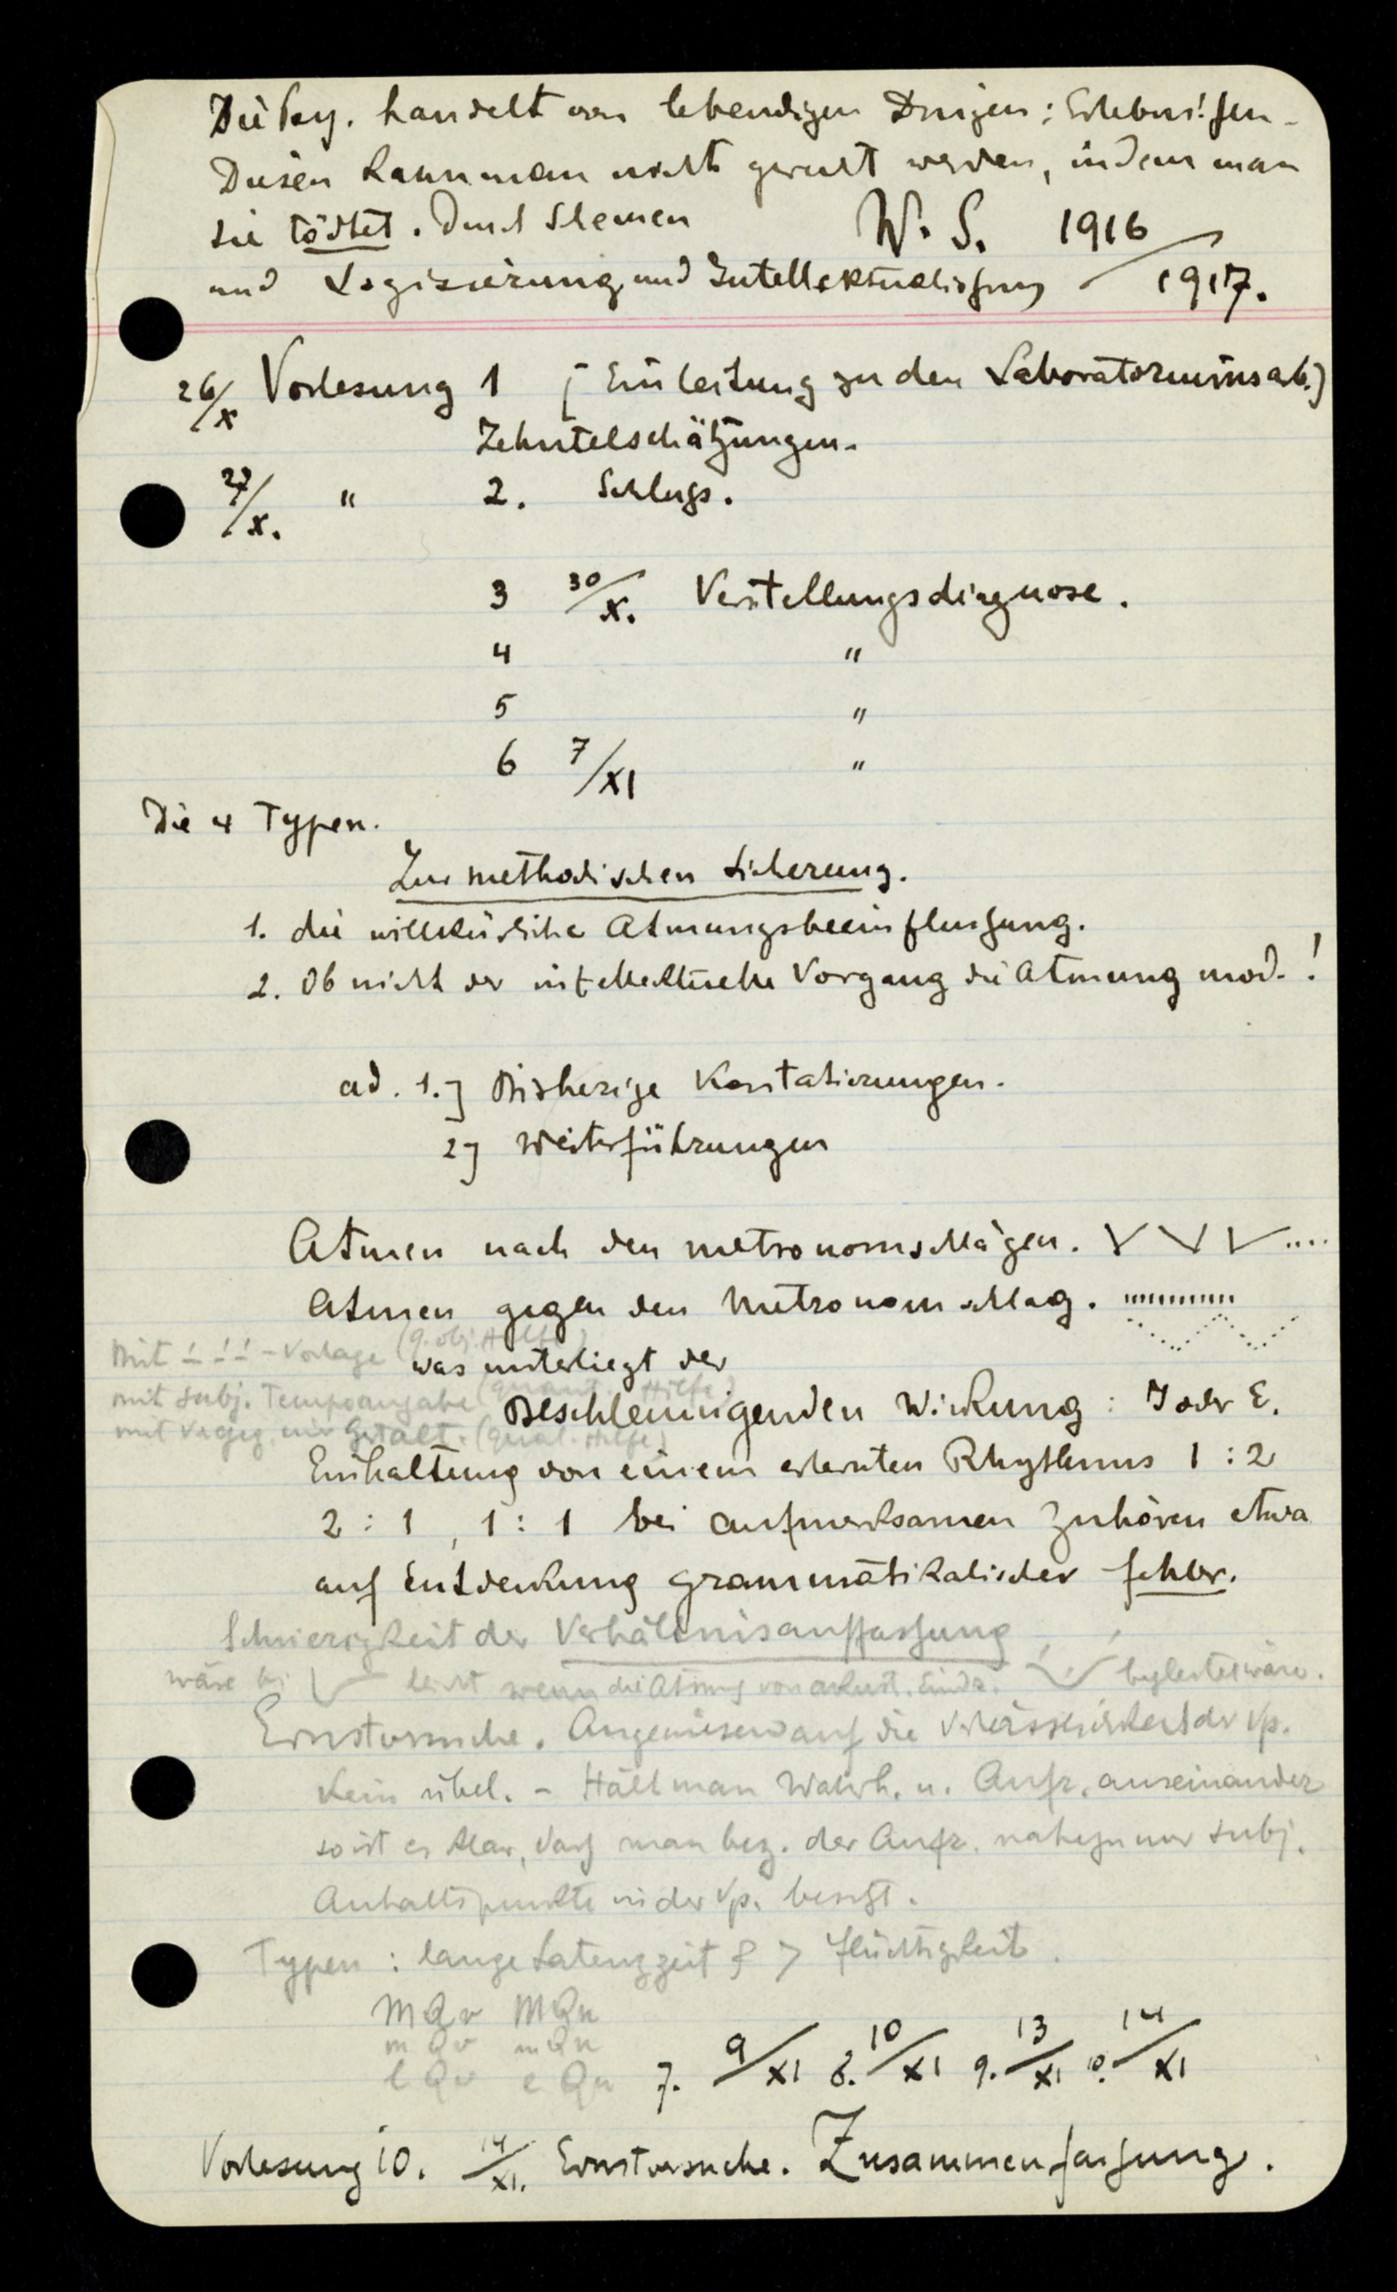 Die Psy. handelt von lebendigen Dingen: Erlebnissen.
Diesen kann man nicht gerecht werden, indem man
sie tödtet. Durch Schemen W. S. 1916
und Logisierung und Intellektualisierung / 1917.
26/X Vorlesung 1 [Einleitung zu den Laboratoriumsarb.]
Zehntelschätzungen.
27/X. " 2. Schluss.
3 30/X. Verstellungsdiagnose.
4 "
5 "
6 7/XI "
Die 4 Typen.
Zur methodischen Sicherung.
1. die willkürliche Atmungsbeeinflussung.
2. Ob nicht der intellektuelle Vorgang die Atmung mod.!
ad. 1.] Bisherige Konstatierungen.
2] Weiterführungen
Atmen nach den Metronomschlägen. V V V ....
Atmen gegen den Metronomschlag.
Mit – Vorlage (q. obj. Hilfe)
was unterliegt der
mit subj. Tempoangabe (quant. Hilfe)
Beschleunigenden Wirkung: I oder E.
mit Gestalt. (qual. Hilfe)
Einhaltung von einem erlernten Rhythmus 1 : 2
2 : 1, 1 : 1 bei aufmerksamen Zuhören etwa
auf Entdeckung grammatikalischer Fehler.
Schwierigkeit der Verhältnisauffassung
wäre bei leicht wenn die Atmung von akust. Eindr. begleitet wäre.
Ernstversuche. Angewiesen auf die Verlässlichkeit der Vp.
Kein übel. – Hält man Wahrh. u. Aufr. auseinander
so ist es klar, dass man bez. der Aufr. nahezu nur subj.
Anhaltspunkte in der Vp. besitzt.
Typen: lange Latenzzeit > Flüchtigkeit.
MQv MQn
mQv mQn
lQv lQn
7. 9/XI 8. 10/XI 9. 13/XI 10. 14/XI
Vorlesung 10. 14/XI. Ernstversuche. Zusammenfassung.